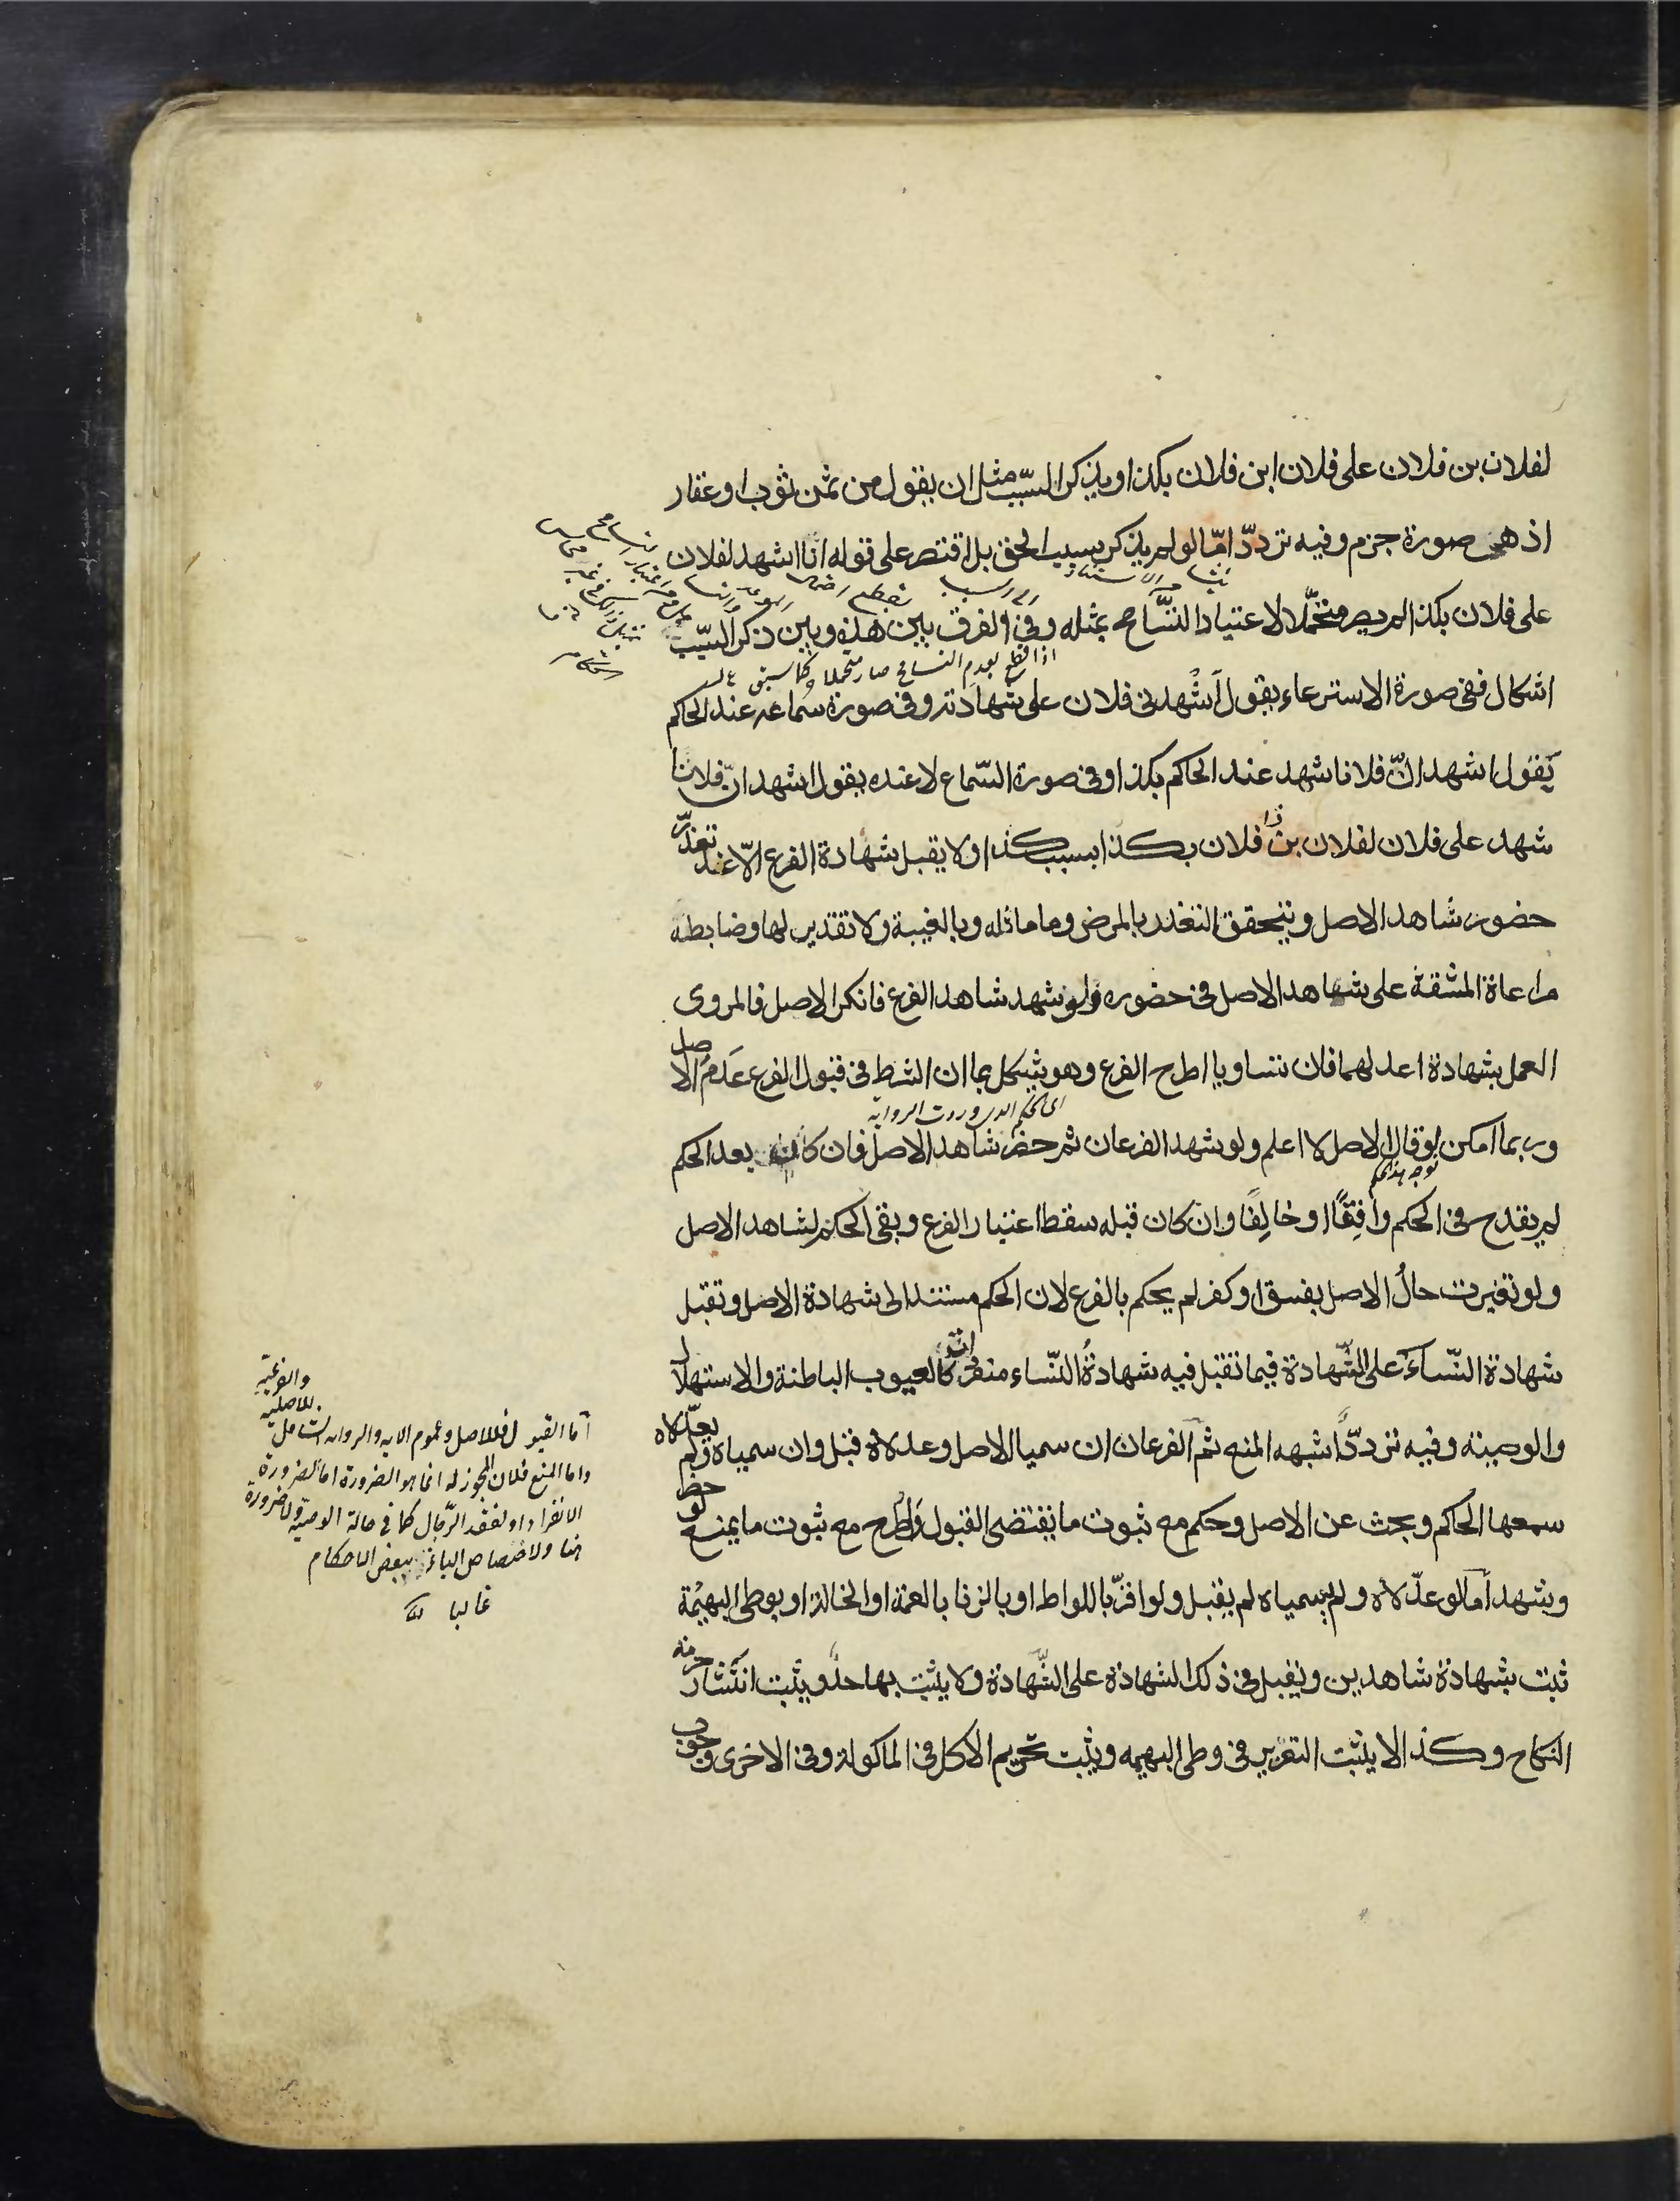 لفلان بن فلان على فلان ابن فلان بكذا ويذكر السبب مثل ان يقول من ثمن ثوب او عقار
اذ هي صورة جزم وفيه تردد امّا لو لم يذكر سبب الحق بل اقتصر على قوله انا اشهد لفلان
على فلان بكذا لم يصر متحمّلا لاعتياد التسامح بمثله وفي الفرق بين هذه وبين ذكر السبب
اشكال ففي صورة الاسترعاء يقول أشْهدني فلان على شهادته وفي صورة سماعه عند الحاكم
يَقول اشهد انّ فلانا شهد عند الحاكم بكذا وفي صورة السّماع لا عنده يقول اشهد انّ فلانا
شهد على فلان لفلان بن فلان بكذا بسبب كذا ولا يقبل شهادة الفرع الّا عند تعذّر
حضور شاهد الاصل ويتحقق التعذر بالمرض وما ماثله وبالغيبة ولا تقدير لها وضابطه
مراعاة المشقة على شاهد الاصل في حضوره ولو شهد شاهد الفرع فانكر الاصل فالمروى
العمل بشهادة اعدلهما فان تساويا اطرح الفرع وهو يشكل بما ان الشرط في قبول الفرع عَدَمُ الاصل
اي الحكم الذي وردت الرواية
وربما امكن لو قال الاصل لا اعلم ولو شهد الفرعان ثم حضر شاهد الاصل فان كان بعد الحكم
لم يقدح في الحكم وافقا او خالفا وان كان قبله سقط اعتبار الفرع وبقى الحكم لشاهد الاصل
ولو تغيرت حالُ الاصل بفسق او كفر لم يحكم بالفرع لان الحكم مستند الى شهادة الاصل وتقبل
شهادة النّساء على الشّهادة فيما تقبل فيه شهادةُ النّساء منفردات كالعيوب الباطنة والاستهلال
والوصية وفيه تردد اشبهه المنع ثم الفرعان ان سميا الاصل وعدلاه قبل وان سمياه ولم يعدّلاه
سمعها الحاكم وبحث عن الاصل وحكم مع ثبوت ما يقتضى القبول وَطرح مع ثبوت ما يمنع لو حضر
وشهد أما لو عدّلاه ولم يسمياه لم يقبل ولو اقرّ باللواط او بالزنا بالعمة او الخالة او بوطى البهيمة
ثبت بشهادة شاهدين وتقبل في ذلك الشهادة على الشّهادة ولا يثبت بها حدّ ويثبت انتشار حرمة
النكاح وكذا لا يثبت التعزير في وطى البهيمه ويثبت تحريم الاكل في الماكولة وفي الاخرى وجوب
اما القبول فللاصل وعموم الايه والروايه الشامل
للاصلية
والفرعية
واما المنع فلان المجوز له انما هو الضرورة اما لضرورة
الانفراد او لفقد الرّجال كما في حالة الوصية ولا ضرورة
هنا ولاختصاص النساء ببعض الاحكام
غالبا